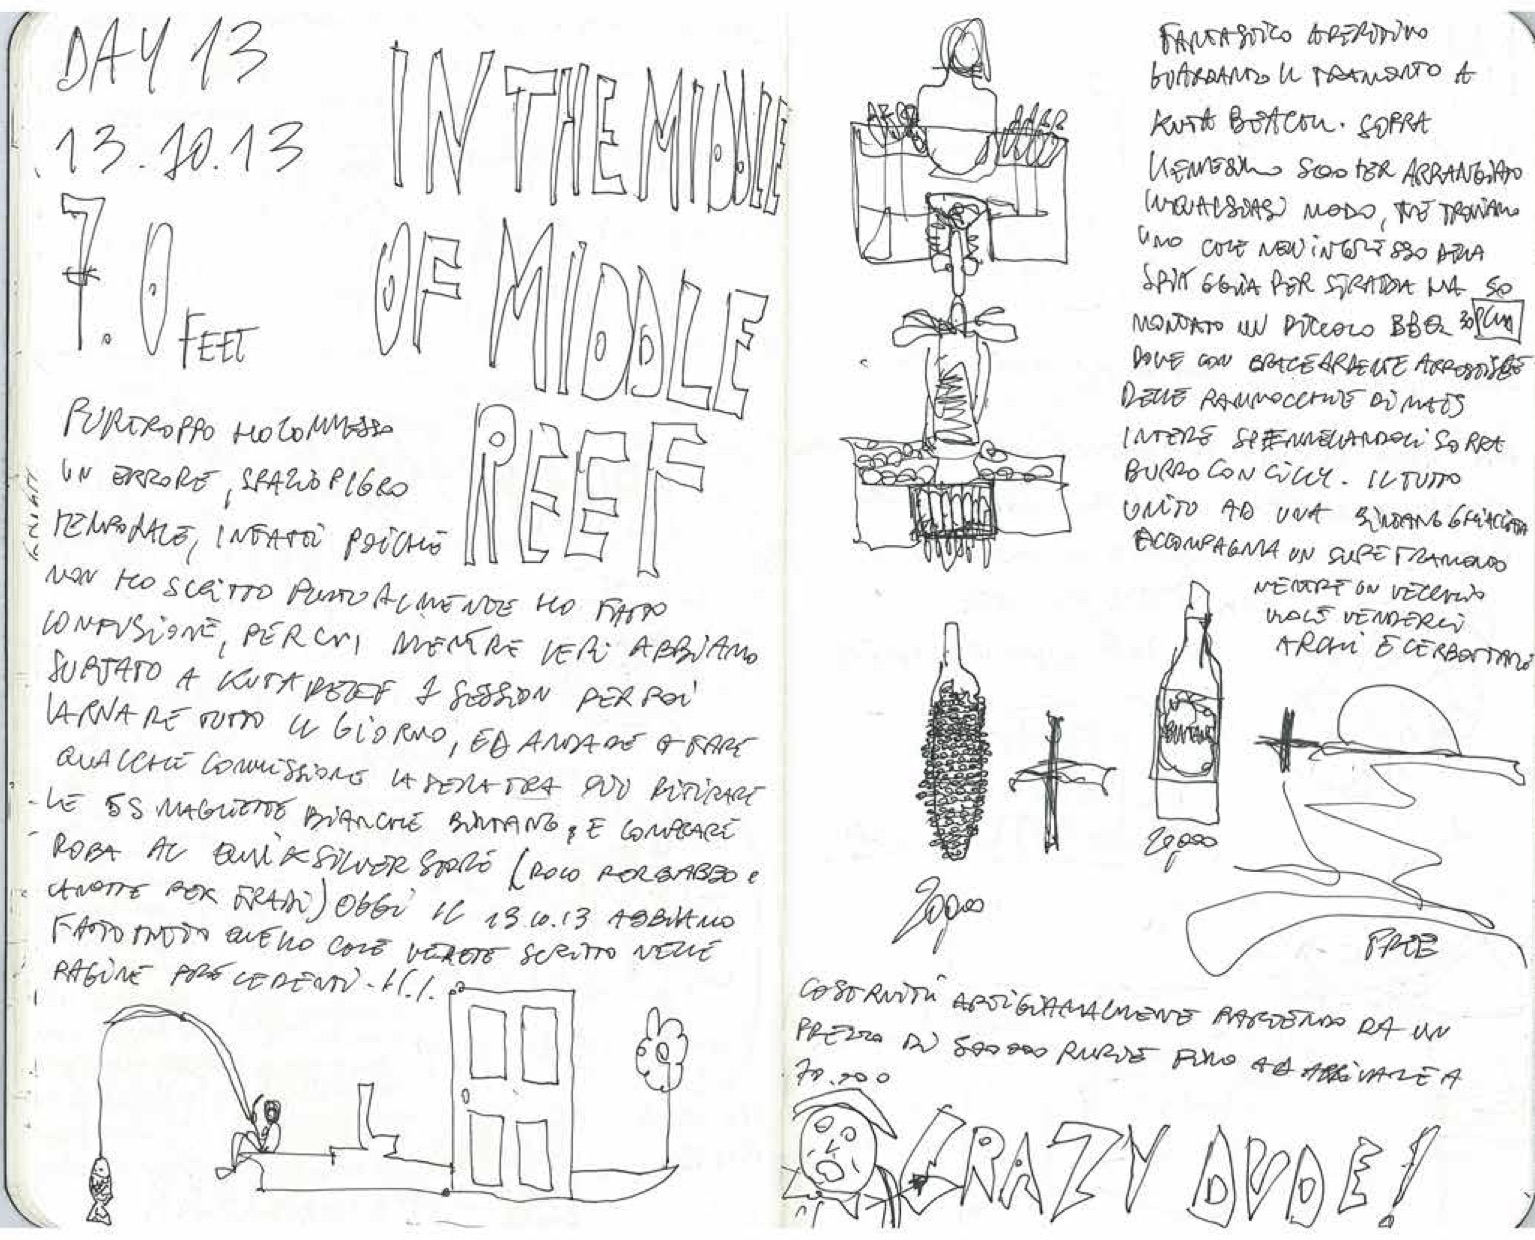 DAY 13
13.10.13
7.0 FEET
IN THE MIDDLE
OF MIDDLE
REEF
PURTROPPO HO COMMESSO
UN ERRORE, SPAZIO PIGRO
TEMPORALE, INFATTI POICHÉ
NON HO SCRITTO PUNTUALMENTE HO FATTO
CONFUSIONE, PER CUI MENTRE IERI ABBIAMO
SURFATO A KUTA REEF 1 SESSION PER POI
LARNARE TUTTO IL GIORNO, ED ANDARE A FARE
QUALCHE COMMISSIONE LA SERA TRA CUI RITIRARE
LE 55 MAGLIETTE BIANCHE BINTANG, E COMPRARE
ROBA AL QUIKSILVER STORE (POLO PER BABBO E
CANOTTE PER FRADI) OGGI IL 13.10.13 ABBIAMO
FATTO TUTTO QUELLO CHE VEDETE SCRITTO NELLE
PAGINE PRECEDENTI
FANTASTICO APERITIVO
GUARDANDO IL TRAMONTO A
KUTA BEACH. SOPRA
L'ENNESIMO SCOOTER ARRANGIATO
IN QUALSIASI MODO, TROVIAMO
UNO CHE NELL'INGRESSO DELLA
SPIAGGIA PER STRADA HA
MONTATO UN PICCOLO BBQ
DOVE CON BRACE ARDENTE ARROSTISCE
DELLE PANNOCCHIE DI MAIS
INTERE SPENNELLANDOLI SOPRA
BURRO CON CILLY. IL TUTTO
UNITO AD UNA BINTANG GHIACCIATA
ACCOMPAGNA UN SUPER TRAMONTO
MENTRE UN VECCHIO
VUOLE VENDERCI
ARCHI E CERBOTTANE
BINTANG
20,000
20,000
FREE
COSTRUITI ARTIGIANALMENTE PARTENDO DA UN
PREZZO DI 500000 RUPIE FINO AD ARRIVARE A
70.000
CRAZY DUDE!